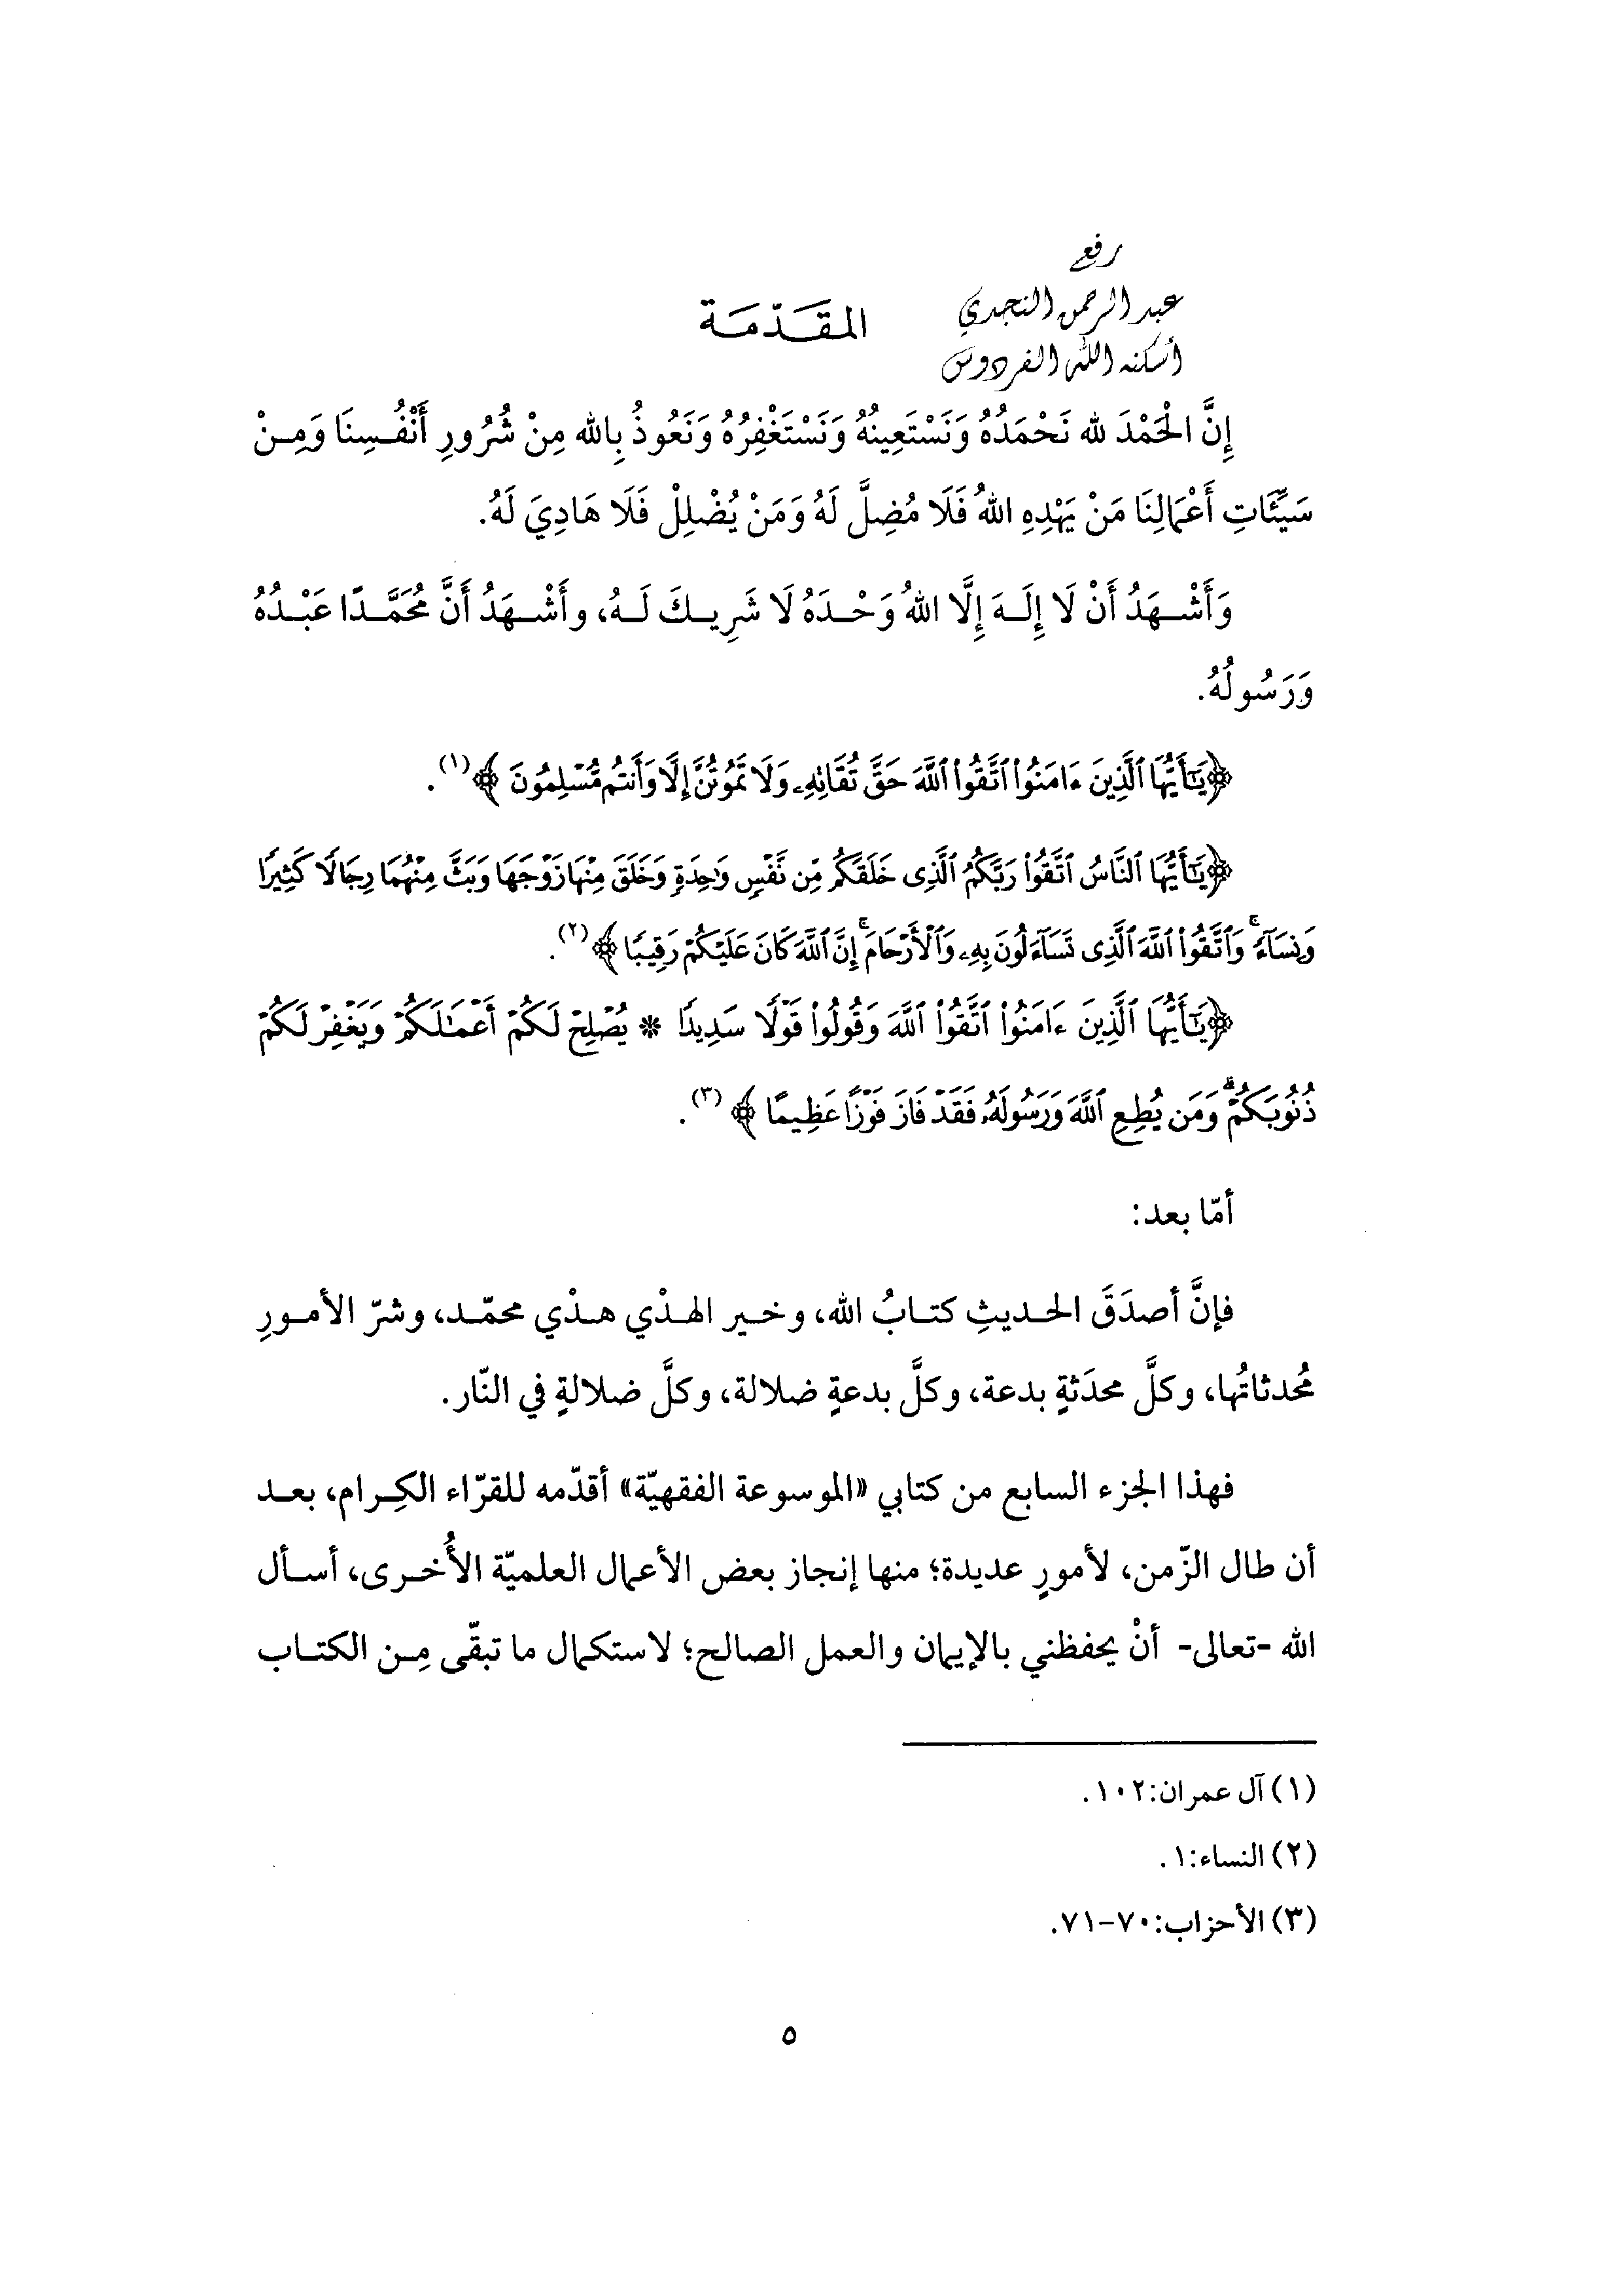 رفع
عبد الرحمن النجدي
أسكنه الله الفردوس
المقَدّمَة
إِنَّ الْحَمْدَ لله نَحْمَدُهُ وَنَسْتَعِينُهُ وَنَسْتَغْفِرُهُ وَنَعُوذُ بِالله مِنْ شُرُورِ أَنْفُسِنَا وَمِنْ
سَيِّئَاتِ أَعْمَالِنَا مَنْ يَهْدِهِ اللهُ فَلَا مُضِلَّ لَهُ وَمَنْ يُضْلِلْ فَلَا هَادِيَ لَهُ.
وَأَشْهَدُ أَنْ لَا إِلَهَ إِلَّا اللهُ وَحْدَهُ لَا شَرِيكَ لَهُ، وأَشْهَدُ أَنَّ مُحَمَّدًا عَبْدُهُ
وَرَسُولُهُ.
﴿يَٰٓأَيُّهَا ٱلَّذِينَ ءَامَنُوا۟ ٱتَّقُوا۟ ٱللَّهَ حَقَّ تُقَاتِهِۦ وَلَا تَمُوتُنَّ إِلَّا وَأَنتُم مُّسْلِمُونَ ﴾(١).
﴿يَٰٓأَيُّهَا ٱلنَّاسُ ٱتَّقُوا۟ رَبَّكُمُ ٱلَّذِى خَلَقَكُم مِّن نَّفْسٍ وَٰحِدَةٍ وَخَلَقَ مِنْهَا زَوْجَهَا وَبَثَّ مِنْهُمَا رِجَالًا كَثِيرًا
وَنِسَآءً ۚ وَٱتَّقُوا۟ ٱللَّهَ ٱلَّذِى تَسَآءَلُونَ بِهِۦ وَٱلْأَرْحَامَ ۚ إِنَّ ٱللَّهَ كَانَ عَلَيْكُمْ رَقِيبًا ﴾(٢).
﴿يَٰٓأَيُّهَا ٱلَّذِينَ ءَامَنُوا۟ ٱتَّقُوا۟ ٱللَّهَ وَقُولُوا۟ قَوْلًا سَدِيدًا * يُصْلِحْ لَكُمْ أَعْمَٰلَكُمْ وَيَغْفِرْ لَكُمْ
ذُنُوبَكُمْ ۗ وَمَن يُطِعِ ٱللَّهَ وَرَسُولَهُۥ فَقَدْ فَازَ فَوْزًا عَظِيمًا ﴾(٣).
أمّا بعد:
فإنَّ أصدَقَ الحديثِ كتابُ الله، وخير الهدْي هدْي محمّد، وشرّ الأمورِ
مُحدثاتُها، وكلَّ محدَثةٍ بدعة، وكلَّ بدعةٍ ضلالة، وكلَّ ضلالةٍ في النّار.
فهذا الجزء السابع من كتابي «الموسوعة الفقهيّة» أقدّمه للقرّاء الكِرام، بعد
أن طال الزّمن، لأمورٍ عديدة؛ منها إنجاز بعض الأعمال العلميّة الأُخرى، أسأل
الله -تعالى- أنْ يحفظني بالإيمان والعمل الصالح؛ لاستكمال ما تبقّى مِن الكتاب
(١) آل عمران:١٠٢.
(٢) النساء:١.
(٣) الأحزاب:٧٠-٧١.
٥